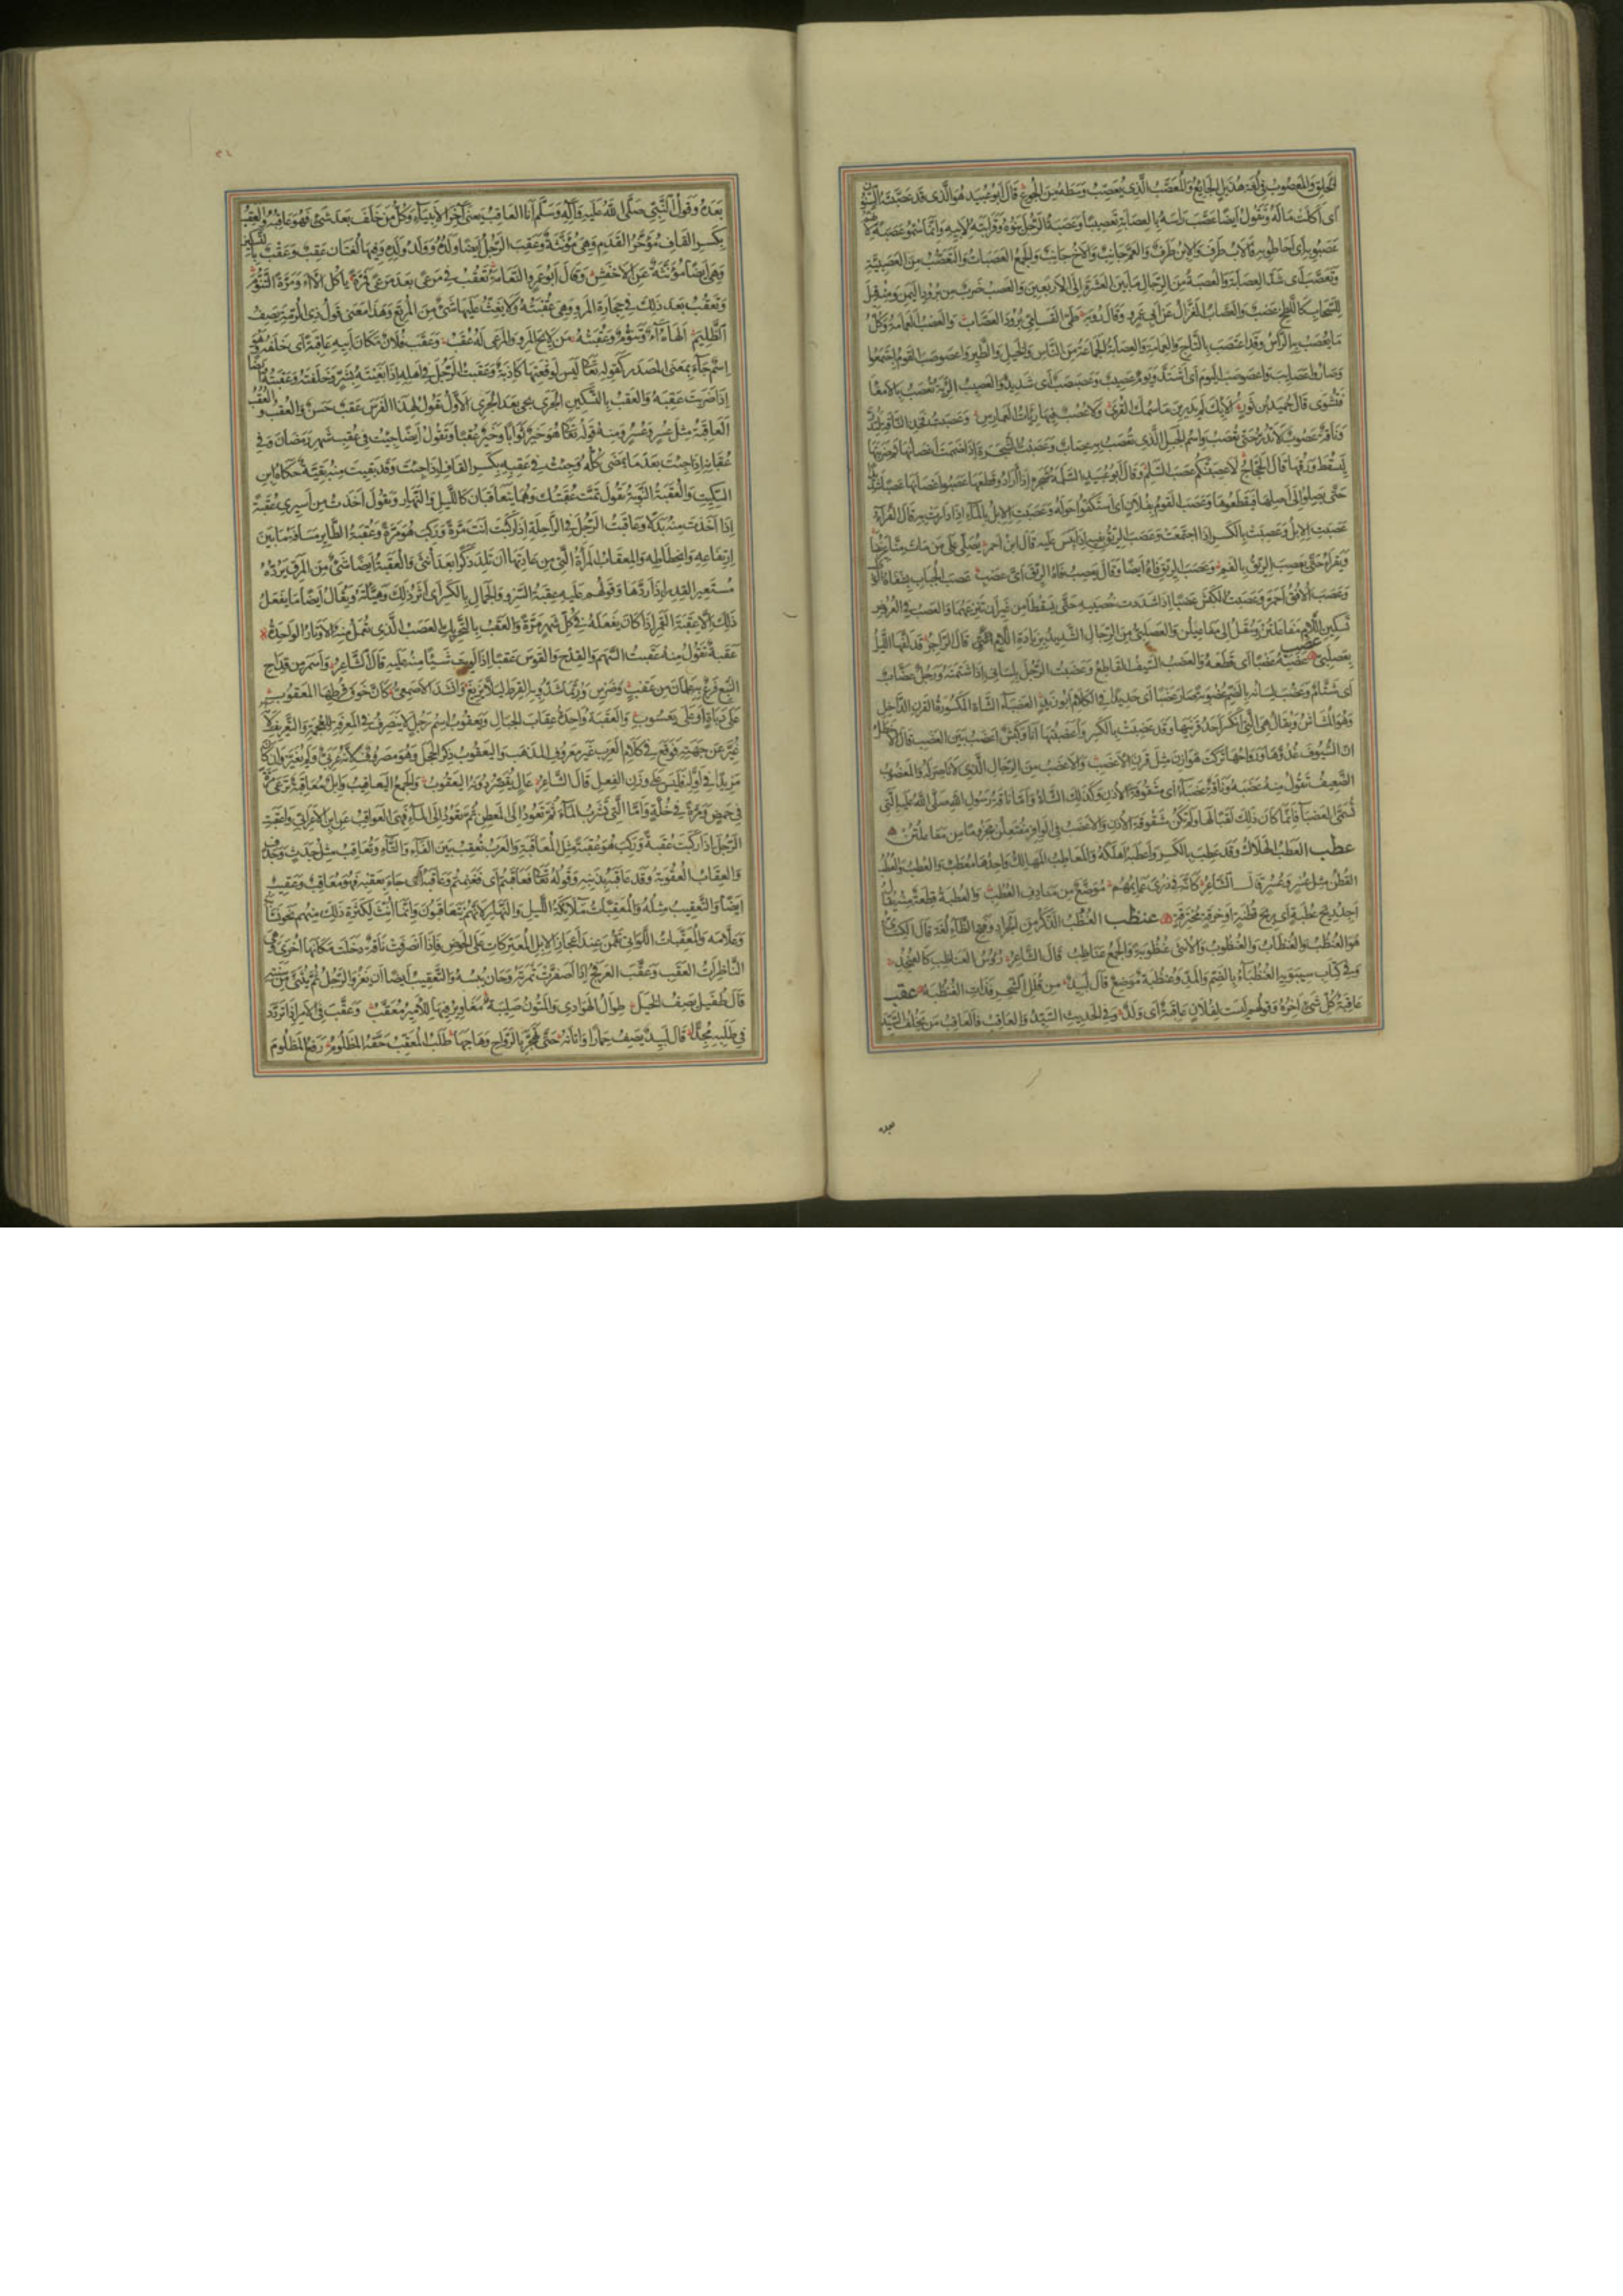 الخلق والمعصوب في لغة هذيل الجايع والمعصب الذي يعصب وسطه من الجوع قال ابو عبيد هو الذي قد عصبته السنون
اى اكلت ماله وتقول ايضا عصب راسه بالعصابة تعصيبا وعصبة الرجل بنوه وقرابته لابيه وانما سموا عصبة لانهم
عصبوا به اى احاطوا به فالاب طرف والابن طرف والعم جانب والاخ جانب والجمع العصبات والتعصب من العصبية
وتعصب اى شد العصابة والعصبة من الرجال ما بين العشرة الى الاربعين والعصب ضرب من برود اليمن ومنه قيل
للسحاب كاللطخ عصب والعصاب الغزال عن ابى عمرو وقال رؤبة طي القسامي برود العصاب والعصب العمامة وكل
ما يعصب به الراس وقد اعتصب بالتاج والعمامة والعصابة الجماعة من الناس والخيل والطير واعصوصب القوم اجتمعوا
وصاروا عصايب واعصوصب اليوم اى اشتد ويوم عصيب وعصبصب اى شديد والعصيب الرئة تعصب بالامعاء
فتشوى قال حميد بن ثور
وناقة عصوب لا تدر حتى تعصب واسم الحبل الذي تعصب به عصاب وعصبت الشجرة اذا ضممت اغصانها ثم ضربتها
ليسقط ورقها قال الحجاج لاعصبنكم عصب السلم وقال ابو عبيد السلمة شجرة اذا ارادوا قطعها عصبوا اغصانها عصبا شديدا
حتى يصلوا الى اصلها فيقطعوها وعصب القوم بفلان اى استكفوا حوله وعصبت الابل بالماء اذا دارت به قال الفراء
عصبت الابل وعصبت بالكسر اذا اجتمعت وعصب الريق بفيه اذا يبس عليه قال ابن احمر يصلى على من مات منا عريفنا
ويقرأ حتى يعصب الريق بالفم وعصب الريق فاه ايضا وقال يعصب فاه الريق اى عصب عصب الجباب بشفاه الوطب
وعصب الافق احمر وعصبت الكبش عصبا اذا شددت خصييه حتى يسقطا من غير ان تنزعهما والعصب في العروض
تسكين اللام من مفاعلتن وينقل الى مفاعيلن والعصلبي من الرجال الشديد بزيادة اللام قال الراجز قد لفها الليل
بعصلبي عضب عضبه عضبا اى قطعه والعضب السيف القاطع وعضبت الرجل بلساني اذا شتمته ورجل عضاب
اى شتام وعضب لسانه بالضم عضوبة صار عضبا اى حديدا في الكلام ابو زيد العضباء الشاة المكسورة القرن الداخل
وهو المشاش ويقال هي التي انكسر احد قرنيها وقد عضبت بالكسر واعضبتها انا وكبش اعضب بين العضب قال الاخطل
ان السيوف غدوها ورواحها تركت هوازن مثل قرن الاعضب والاعضب من الرجال الذي لا ناصر له والمعضوب
الضعيف تقول منه عضبه وناقة عضباء اى مشقوقة الاذن وكذلك الشاة واما ناقة رسول الله صلى الله عليه التى
تسمى العضباء فانما كان ذلك لقبا لها ولم تكن مشقوقة الاذن والاعضب في الوافر مفتعلن مخروما من مفاعلتن
عطب العطب الهلاك وقد عطب بالكسر واعطبه اهلكه والمعاطب المهالك واحدها معطب والعطب والعطب
القطن مثل عسر وعسر قال الشاعر كانه في ذرى عمائمهم موضع من منادف العطب والعطبة قطعة منه يقال
اجد ريح عطبة اى ريح قطنة او خرقة محترقة عنظب العنظب الذكر من الجراد وفتح الظاء لغة قال الكسائى
هو العنظب والعنظاب والعنظوب والانثى عنظوبة والجمع عناظب قال الشاعر رؤوس العناظب كالعنجد
وفي كتاب سيبويه العنظباء بالضم والمد وعنظبة موضع قال لبيد من قلل الشحر فذات العنظبة عقب
عاقبة كل شئ اخره وقولهم ليست لفلان عاقبة اى ولد وفي الحديث السيد والعاقب فالعاقب من يخلف السيد
بعده وقول النبي صلى الله عليه وآله وسلم انا العاقب يعنى آخر الانبياء وكل من خلف بعد شئ فهو عاقبه والعقب
بكسر القاف مؤخر القدم وهي مؤنثة وعقب الرجل ايضا ولده وولد ولده وفيها لغتان عقب وعقب بالتسكين
وهي ايضا مؤنثة عن الاخفش وقال ابو عمرو النعامة تعقب في مرعى بعد مرعى فمرة ياكل الآء ومرة التنوم
وتعقب بعد ذلك في حجارة المرو وهي عقبته ولا يغث عليها شئ من المرتع وهذا معنى قول ذى الرمة يصف
الظليم الهاه آء وتنوم وعقبته من لائح المرو والمرعى له عقب وعقب فلان مكان ابيه عاقبة اى خلفه وهو
اسم جاء بمعنى المصدر كقوله تعالى ليس لوقعتها كاذبة وعقبت الرجل في اهله اذا بغيته بشر وخلفته وعقبته ايضا
اذا ضربت عقبه والعقب بالتسكين الجرى يجئ بعد الجرى الاول تقول لهذا الفرس عقب حسن والعقب والعقب
العاقبة مثل عسر وعسر ومنه قوله تعالى هو خير ثوابا وخير عقبا وتقول ايضا جئت في عقب شهر رمضان وفي
عقبانه اذا جئت بعد ما يمضى كله وجئت في عقبه بكسر القاف اذا جئت وقد بقيت منه بقية حكاه ابن
السكيت والعقبة النوبة تقول تمت عقبتك وهما يتعاقبان كالليل والنهار وتقول اخذت من اسيرى عقبة
اذا اخذت منه بدلا وعاقبت الرجل في الراحلة اذا ركبت انت مرة وركب هو مرة وعقبة الطاير مسافة ما بين
ارتفاعه وانحطاطه والمعقاب المرأة التي من عادتها ان تلد ذكرا بعد انثى والعقبة ايضا شئ من المرق يرده
مستعير القدر اذا ردها وقولهم عليه عقبة السرو والجمال بالكسر اى اثر ذلك وهيئته ويقال ايضا ما يفعل
ذلك الا عقبة القمر اذا كان يفعله في كل شهر مرة والعقب بالتحريك العصب الذي تعمل منه الاوتار الواحدة
عقبة تقول منه عقبت السهم والقدح والقوس عقبا اذا لويت شيئا منه عليه قال الشاعر واسمر من قداح
النبع فرع به علمان من عقب وضرس وربما شدوا به القرط لئلا يزيغ وانشد الاصمعي كان خوق قرطها المعقوب
على دباة او على يعسوب والعقبة واحدة عقاب الجبال ويعقوب اسم رجل لا ينصرف في المعرفة للعجمة والتعريف لانه
غير عن جهته فوقع في كلام العرب غير معروف المذهب واليعقوب ذكر الحجل وهو مصروف لانه عربي لم يغير وان كان
مزيدا في اوله فليس على وزن الفعل قال الشاعر عال يقصر دونه اليعقوب والجمع اليعاقيب وابل معاقبة ترعى مرة
في حمض ومرة في خلة واما التي تشرب الماء ثم تعود الى المعطن ثم تعود الى الماء فهي العواقب عن ابن الاعرابي واعقبت
الرجل اذا ركبت عقبة وركب هو عقبة مثل المعاقبة والعرب تعقب بين الفاء والثاء وتعاقب مثل جدث وجدف
والعقاب العقوبة وقد عاقبه بذنبه وقوله تعالى فعاقبتم اى فغنمتم وعاقبه اى جاء بعقبه فهو معاقب وعقيب
ايضا والتعقيب مثله والمعقبات ملائكة الليل والنهار لانهم يتعاقبون وانما انث لكثرة ذلك منهم نحو نسابة
وعلامة والمعقبات اللواتى يقمن عند اعجاز الابل المعتركات على الحوض فاذا انصرفت ناقة دخلت مكانها اخرى وهي
الناظرات العقب وعقب العرفج اذا اصفرت ثمرته وحان يبسه والتعقيب ايضا ان يغزو الرجل ثم يثنى من سنته
قال طفيل يصف الخيل طوال الهوادى والمتون صليبة مغاوير فيها للامير معقب وعقب في الامر اذا تردد
في طلبه مجدا قال لبيد يصف حمارا واتانه حتى تهجر بالرواح وهاجها طلب المعقب حقه المظلوم رفع المظلوم